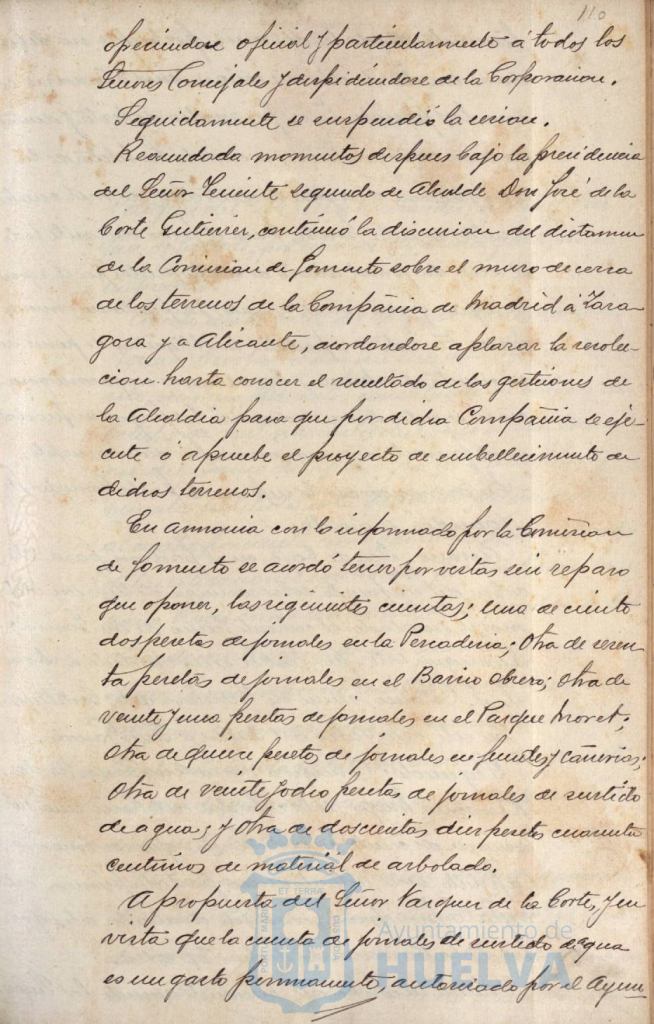 110
ofreciendose oficial y particularmente á todos los
Señores Concejales y despidiendose de la Corporacion.
Seguidamente se suspendió la sesion.
Reanudada momentos despues bajo la presidencia
del Señor Teniente segundo de Alcalde Don José de la
Corte Gutierrez, continuó la discusion del dictamen
de la Comision de Fomento sobre el muro de cerca
de los terrenos de la Compañia de Madrid á Zara-
goza y a Alicante, acordandose aplazar la resolu-
cion hasta conocer el resultado de las gestiones de
la Alcaldia para que por dicha Compañia se eje-
cute ó apruebe el proyecto de embellecimiento de
dichos terrenos.
En armonia con lo informado por la Comision
de Fomento se acordó tener por vistas sin reparo
que oponer, las siguientes cuentas; una de ciento
dos pesetas de jornales en la Pescaderia; Otra de sesen-
ta pesetas de jornales en el Barrio Obrero; otra de
veinte y una pesetas de jornales en el Parque Moret;
Otra de quince pesetas de jornales en fuentes y cañerias;
Otra de veinte y ocho pesetas de jornales de surtido
de agua; y Otra de doscientas diez pesetas cuarenta
centimos de material de arbolado.
A propuesta del Señor Vazquez de la Corte, y en
vista que la cuenta de jornales de surtido de agua
es un gasto permanente, autorizado por el Ayun
Ayuntamiento de
HUELVA